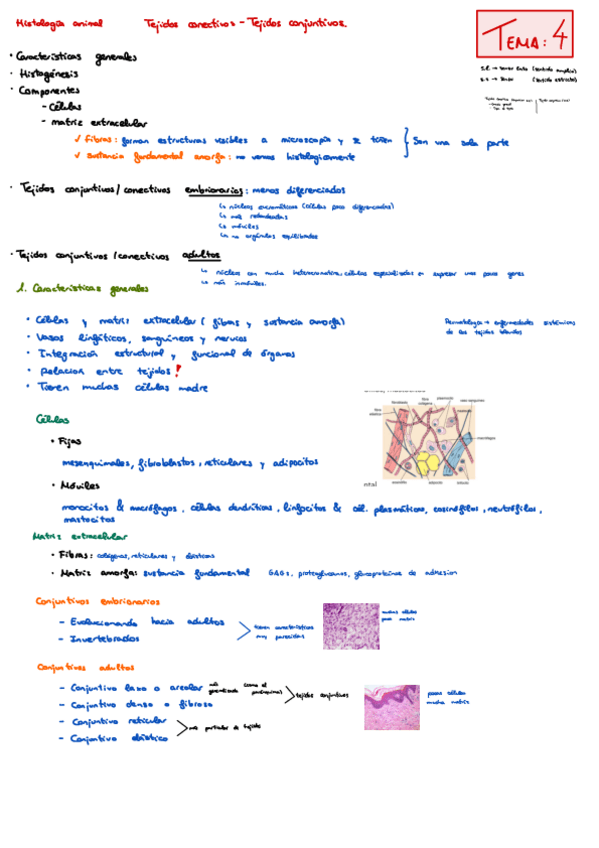 Histología animal
Tejidos conectivos - Tejidos conjuntivos.
TEMA: 4
· Características generales
· Histogénesis
· Componentes
- Células
- matriz extracelular
✓ fibras: forman estructuras visibles a microscopía y se tiñen
✓ sustancia fundamental amorfa: no vemos histologicamente
Son una sola parte
· Tejidos conjuntivos/conectivos embrionarios: menos diferenciados
↳ núcleos eucromáticos (células poco diferenciadas)
↳ más redondeadas
↳ móviles
↳ no orgánulos equilibrados
· Tejidos conjuntivos/conectivos adultos
↳ núcleos con mucha heterocromatina, células especializadas en expresar unos pocos genes
↳ más inmóviles.
1. Características generales
· Células y matriz extracelular (fibras y sustancia amorfa)
· Vasos linfáticos, sanguíneos y nervios
· Integración estructural y funcional de órganos
· Relación entre tejidos!
· Tienen muchas células madre
Reumatología → enfermedades sistémicas
de los tejidos blandos
Células
· Fijas
mesenquimales, fibroblastos, reticulares y adipocitos
· Móviles
monocitos & macrófagos, células dendríticas, linfocitos & cél. plasmáticas, eosinófilos, neutrófilos,
mastocitos
macrófago
Matriz extracelular
· Fibras: colágenas, reticulares y elásticas
· Matriz amorfa: sustancia fundamental GAGs, proteoglucanos, glucoproteínas de adhesion
Conjuntivos embrionarios
- Evolucionando hacia adultos
- Invertebrados
tienen características
muy parecidas
muchas células
poca matriz
Conjuntivos adultos
- Conjuntivo laxo o areolar
- Conjuntivo denso o fibroso
tejidos conjuntivos
- Conjuntivo reticular
- Conjuntivo elástico
pocas células
mucha matriz